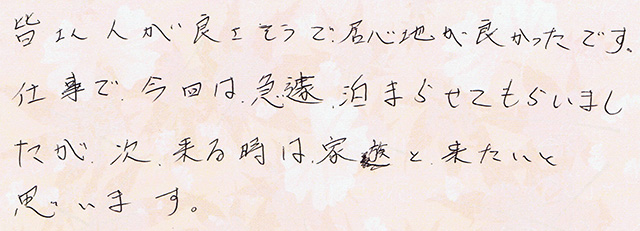 皆さん人が良さそうで居心地が良かったです。
仕事で、今回は、急遽、泊まらせてもらいまし
たが、次、来る時は、家と、来たいと
思います。